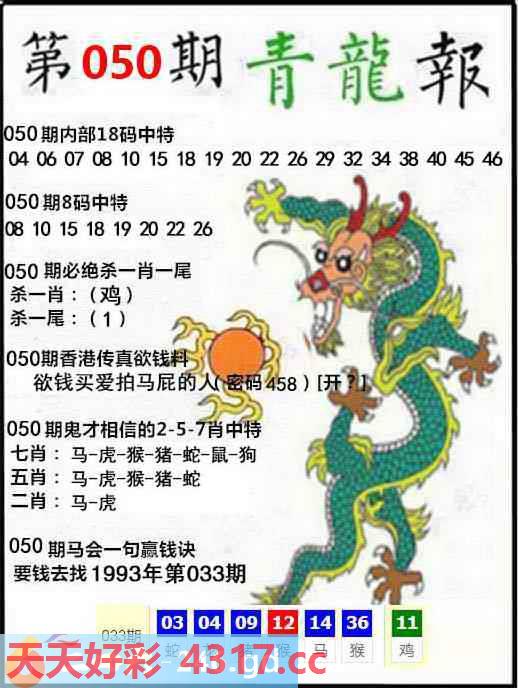 第050期 青龍報
050期内部18码中特
04 06 07 08 10 15 18 19 20 22 26 29 32 34 38 40 45 46
050期8码中特
08 10 15 18 19 20 22 26
050期必绝杀一肖一尾
杀一肖：（鸡）
杀一尾：（1）
050期香港传真欲钱料
欲钱买爱拍马屁的人(密码458)[开？]
050期鬼才相信的2-5-7肖中特
七肖：马-虎-猴-猪-蛇-鼠-狗
五肖：马-虎-猴-猪-蛇
二肖：马-虎
050期马会一句赢钱诀
要钱去找1993年第033期
033期 03 04 09 12 14 36 11
蛇 猪 猴 马 猴 鸡
天天好彩 4317.cc